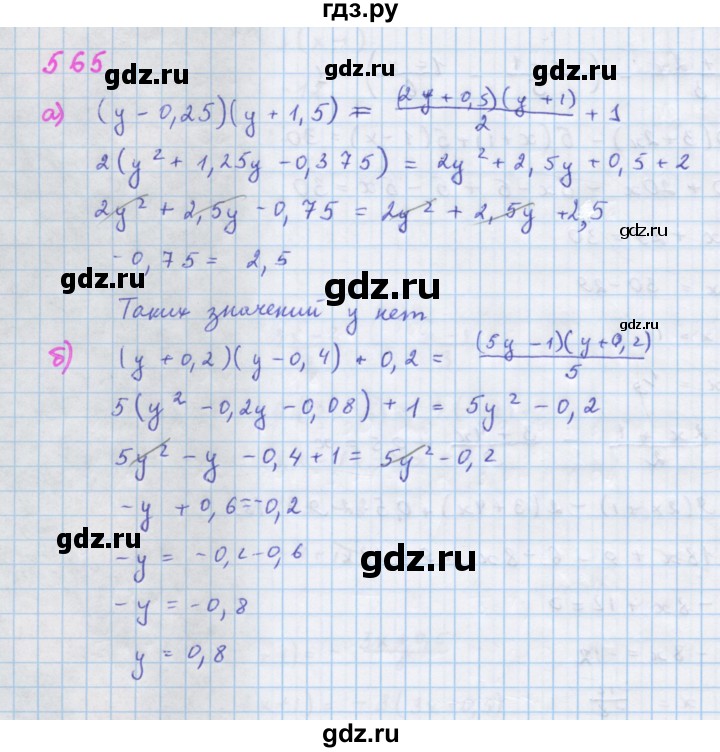 гдз.ру
565
gdz.ru
gdz.ru
а) (y - 0,25)(y + 1,5) = (2y + 0,5)(y + 1)/2 + 1
2(y² + 1,25y - 0,375) = 2y² + 2,5y + 0,5 + 2
gdz.ru
gdz.ru
2y² + 2,5y - 0,75 = 2y² + 2,5y + 2,5
gdz.ru
-0,75 = 2,5
gdz.ru
gdz.ru
Таких значений y нет
gdz.ru
б) (y + 0,2)(y - 0,4) + 0,2 = (5y - 1)(y + 0,2)/5
gdz.ru
5(y² - 0,2y - 0,08) + 1 = 5y² - 0,2
gdz.ru
5y² - y - 0,4 + 1 = 5y² - 0,2
-y + 0,6 = -0,2
gdz.ru
-y = -0,2-0,6
gdz.ru
-y = -0,8
y = 0,8
gdz.ru
gdz.ru
gdz.ru